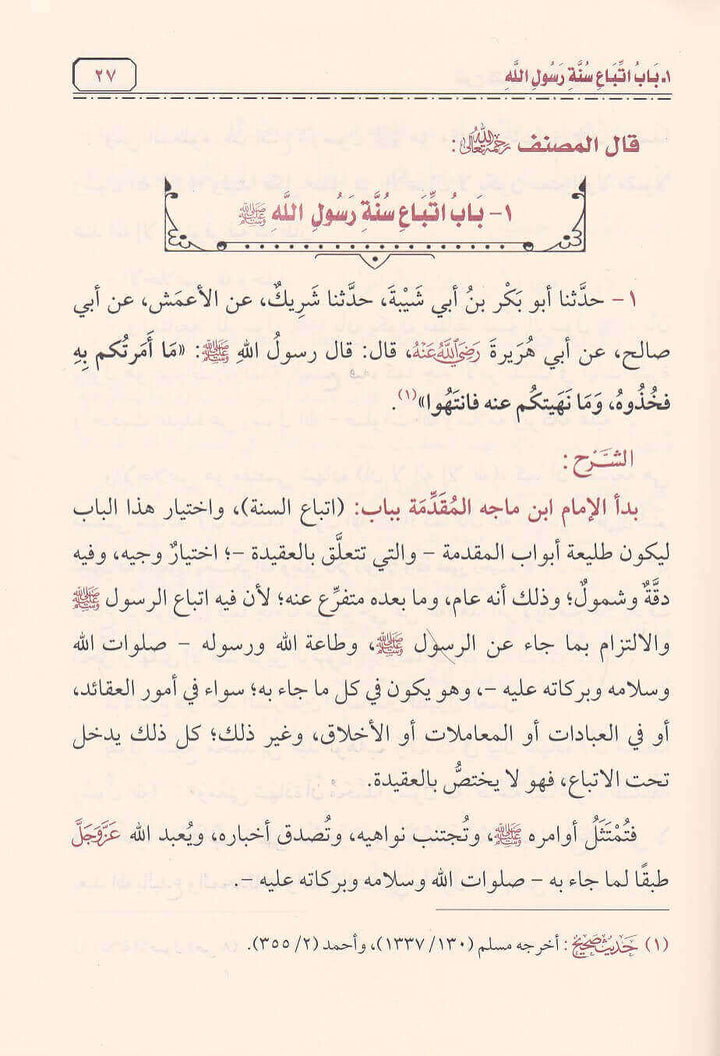 ١ـ بَابُ اتِّبَاعِ سُنَّةِ رَسُولِ اللَّهِ
٢٧
قال المصنف رَحِمَهُ اللَّهُ تَعَالَى:
١- بَابُ اتِّبَاعِ سُنَّةِ رَسُولِ اللَّهِ ﷺ
١- حدَّثنا أبو بَكْر بنُ أبي شَيْبَةَ، حدَّثنا شَرِيكٌ، عن الأعمَش، عن أبي
صالح، عن أبي هُرَيرةَ رَضِيَ اللَّهُ عَنْهُ، قال: قال رسولُ اللهِ ﷺ: «مَا أَمَرتُكم بِهِ
فخُذُوهُ، وَمَا نَهَيتكُم عنه فانتَهُوا»(١).
الشَّرْح:
بدأ الإمام ابن ماجه المُقَدِّمَة بباب: (اتباع السنة)، واختيار هذا الباب
ليكون طليعة أبواب المقدمة - والتي تتعلَّق بالعقيدة -؛ اختيارٌ وجيه، وفيه
دقَّةٌ وشمولٌ؛ وذلك أنه عام، وما بعده متفرِّع عنه؛ لأن فيه اتباع الرسول ﷺ
والالتزام بما جاء عن الرسول ﷺ، وطاعة الله ورسوله - صلوات الله
وسلامه وبركاته عليه -، وهو يكون في كل ما جاء به؛ سواء في أمور العقائد،
أو في العبادات أو المعاملات أو الأخلاق، وغير ذلك؛ كل ذلك يدخل
تحت الاتباع، فهو لا يختصُّ بالعقيدة.
فتُمْتَثَلُ أوامره ﷺ، وتُجتنب نواهيه، وتُصدق أخباره، ويُعبد الله عَزَّوَجَلَّ
طبقًا لما جاء به - صلوات الله وسلامه وبركاته عليه -.
(١) حَدِيثٌ صَحِيحٌ: أخرجه مسلم (١٣٣٧/١٣٠)، وأحمد (٣٥٥/٢).